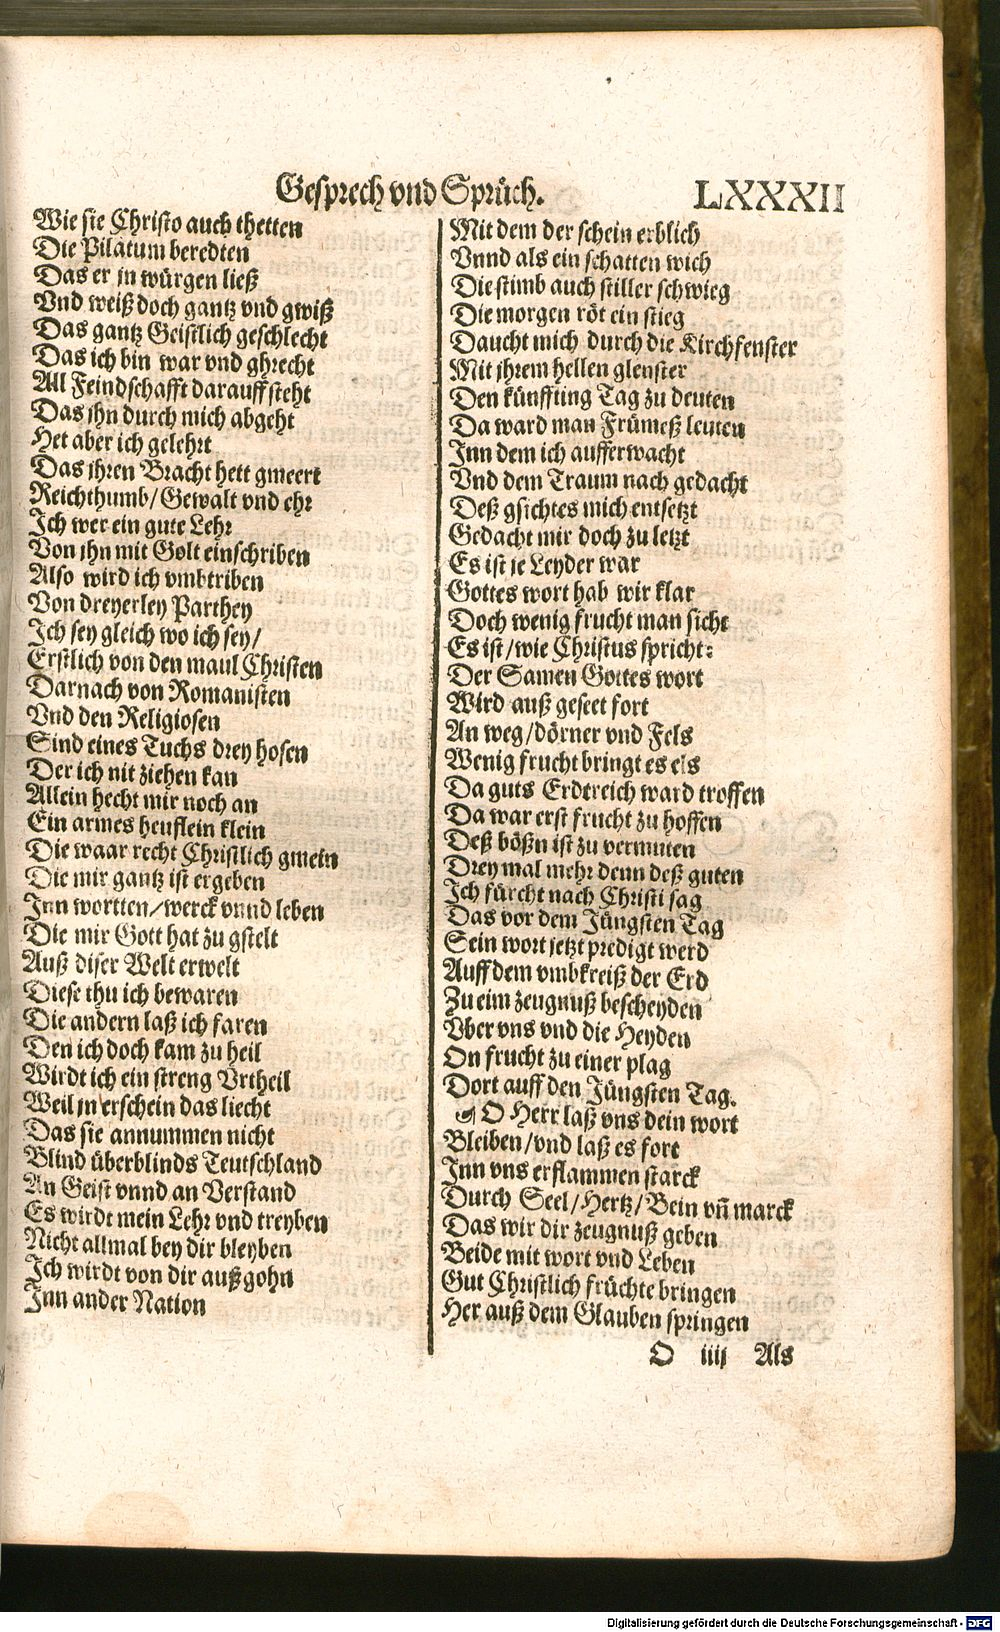 Gesprech vnd Sprůch.
LXXXII
Wie sie Christo auch thetten
Die Pilatum beredten
Das er jn würgen ließ
Vnd weiß doch gantz vnd gwiß
Das gantz Geistlich geschlecht
Das ich bin war vnd ghrecht
All Feindschafft darauff steht
Das jhn durch mich abgeht
Het aber ich gelehrt
Das jhren Bracht hett gmeert
Reichthumb/Gewalt vnd ehr
Ich wer ein gute Lehr
Von jhn mit Golt einschriben
Also wird ich vmbtriben
Von dreyerley Parthey
Ich sey gleich wo ich sey/
Erstlich von den maul Christen
Darnach von Romanisten
Vnd den Religiosen
Sind eines Tuchs drey hosen
Der ich nit ziehen kan
Allein hecht mir noch an
Ein armes heuflein klein
Die waar recht Christlich gmein
Die mir gantz ist ergeben
Inn wortten/werck vnnd leben
Die mir Gott hat zu gstelt
Auß diser Welt erwelt
Diese thu ich bewaren
Die andern laß ich faren
Den ich doch kam zu heil
Wirdt ich ein streng Vrtheil
Weil jn erschein das liecht
Das sie annummen nicht
Blind überblinds Teutschland
An Geist vnnd an Verstand
Es wirdt mein Lehr vnd treyben
Nicht allmal bey dir bleyben
Ich wirdt von dir außgohn
Inn ander Nation
Mit dem der schein erblich
Vnnd als ein schatten wich
Die stimb auch stiller schwieg
Die morgen röt ein stieg
Daucht mich durch die Kirchfenster
Mit jhrem hellen glenster
Den künffting Tag zu deuten
Da ward man Frümeß leuten
Inn dem ich aufferwacht
Vnd dem Traum nach gedacht
Deß gsichtes mich entsetzt
Gedacht mir doch zu letzt
Es ist je Leyder war
Gottes wort hab wir klar
Doch wenig frucht man sicht
Es ist/wie Christus spricht:
Der Samen Gottes wort
Wird auß geseet fort
An weg/dörner vnd Fels
Wenig frucht bringt es els
Da guts Erdtreich ward troffen
Da war erst frucht zu hoffen
Deß bößn ist zu vermuten
Drey mal mehr denn deß guten
Ich fürcht nach Christi sag
Das vor dem Jüngsten Tag
Sein wort jetzt predigt werd
Auff dem vmbkreiß der Erd
Zu eim zeugnuß bescheyden
Vber vns vnd die Heyden
On frucht zu einer plag
Dort auff den Jüngsten Tag.
☙ O Herr laß vns dein wort
Bleiben/vnd laß es fort
Inn vns erflammen starck
Durch Seel/Hertz/Bein vñ marck
Das wir dir zeugnuß geben
Beide mit wort vnd Leben
Gut Christlich früchte bringen
Her auß dem Glauben springen
O iiij Als
Digitalisierung gefördert durch die Deutsche Forschungsgemeinschaft - DFG